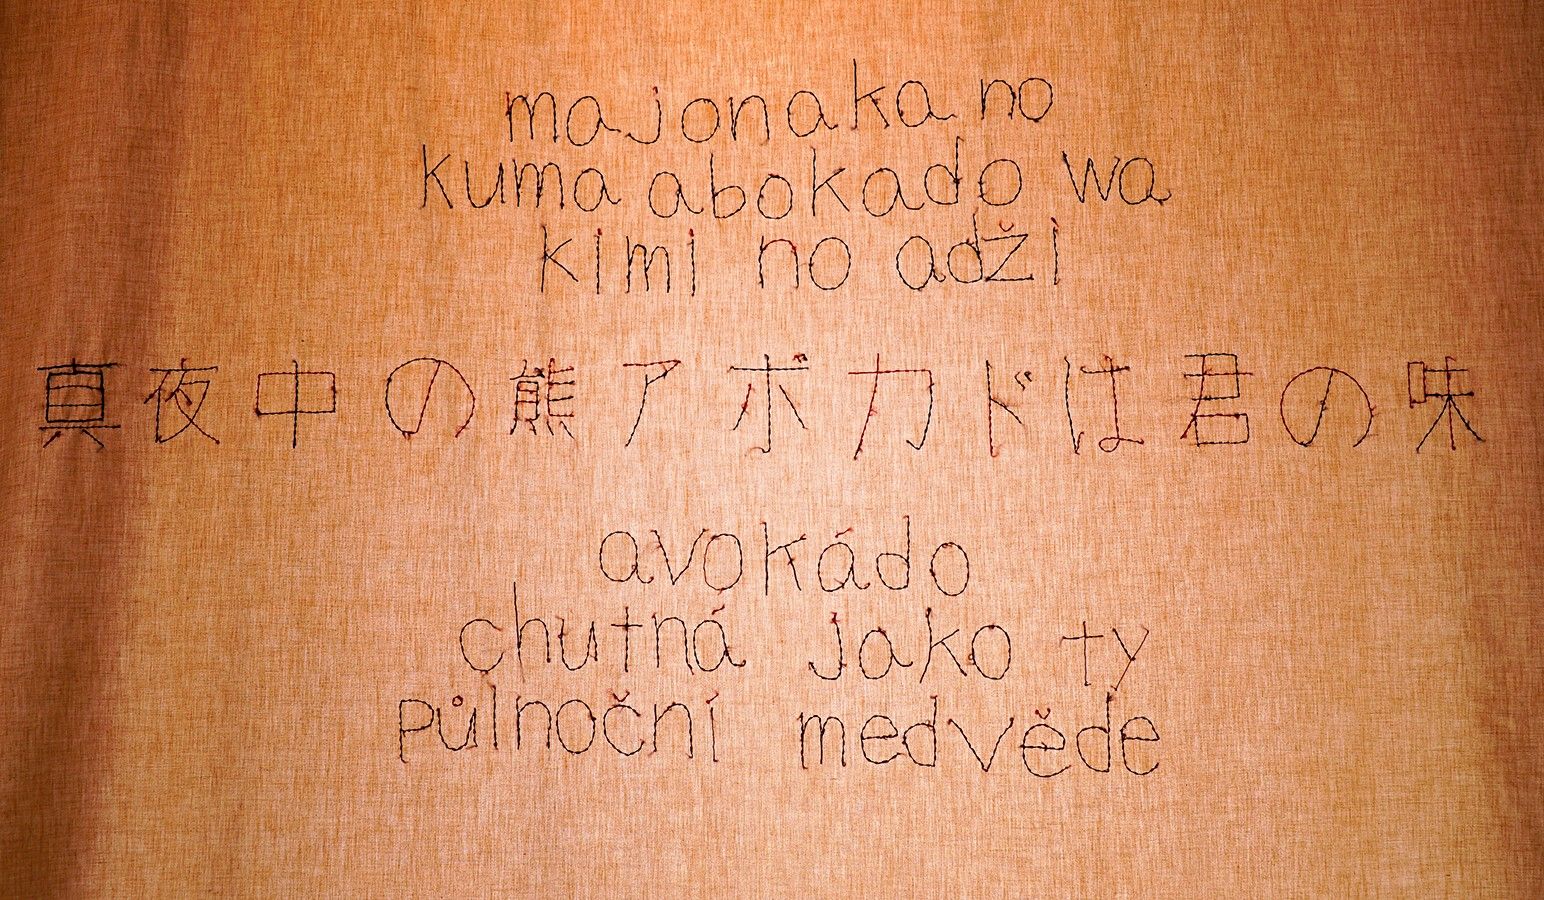 majonaka no
kuma abokado wa
kimi no adži
真夜中の熊アボカドは君の味
avokádo
chutná jako ty
půlnoční medvěde